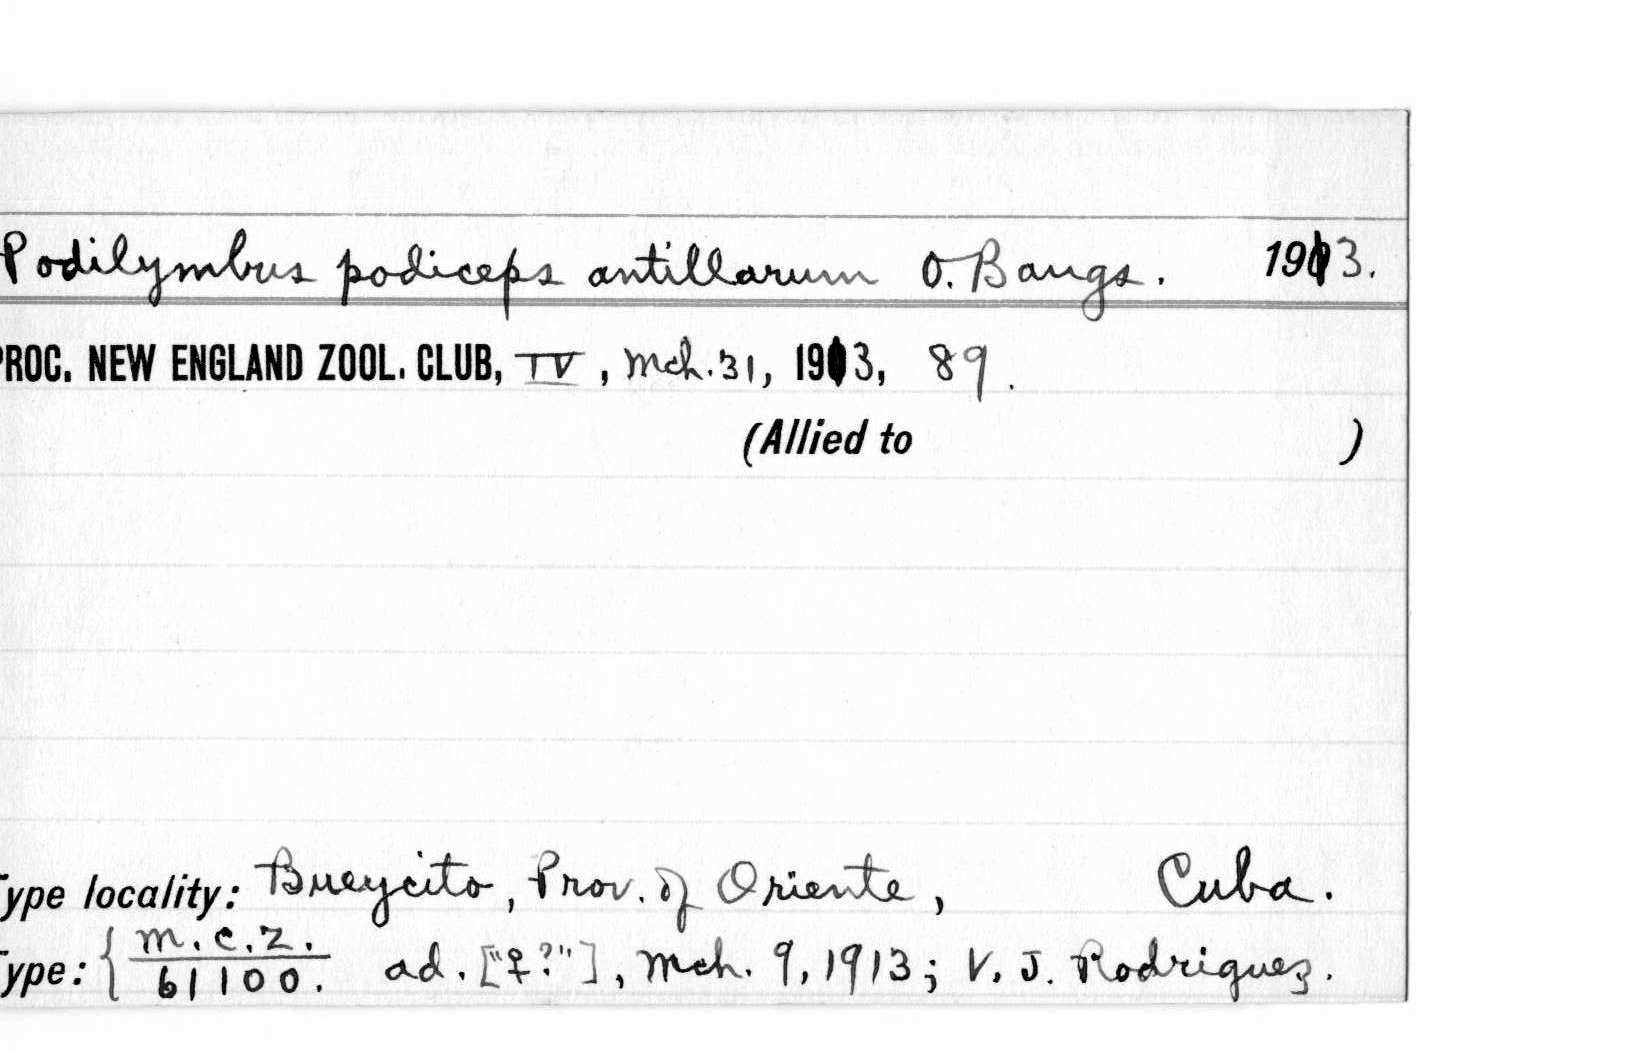 Podilymbus podiceps antillarum O. Bangs. 1913.
PROC. NEW ENGLAND ZOOL. CLUB, IV, Mch. 31, 1913, 89.
(Allied to )
Type locality: Bueycito, Prov. of Oriente, Cuba.
Type: { M.C.Z.
61100. ad. ["♀?"], Mch. 9, 1913; V. J. Rodriguez.